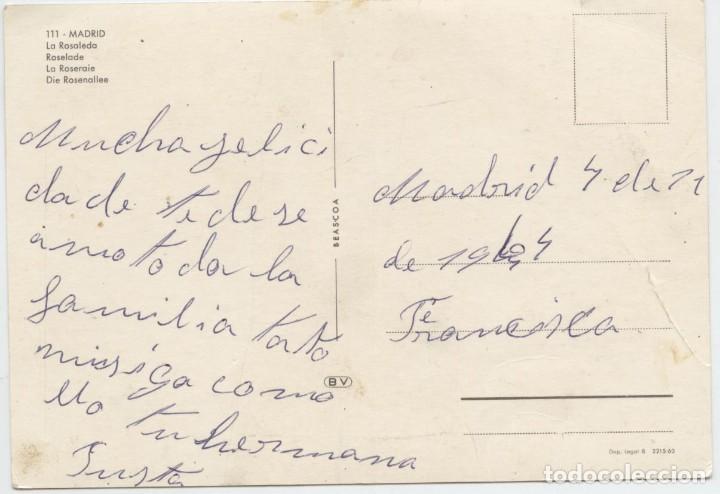 111 - MADRID
La Rosaleda
Roselade
La Roseraie
Die Rosenallee
Mucha felici
da de te dese
amo to da la
familia tanto
como
Yo tu hermana
Justa
BEASCOA
BV
Madrid 4 de 11
de 1964
Francisca
Dep. Legal B 2215-63
todocoleccion